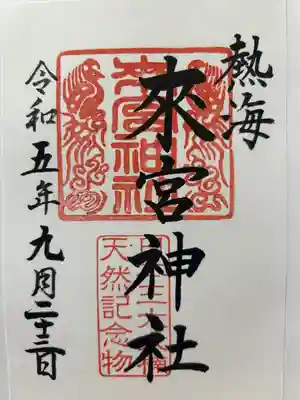 熱海
來宮神社
令和五年九月二十三日
來宮神社
天然記念物